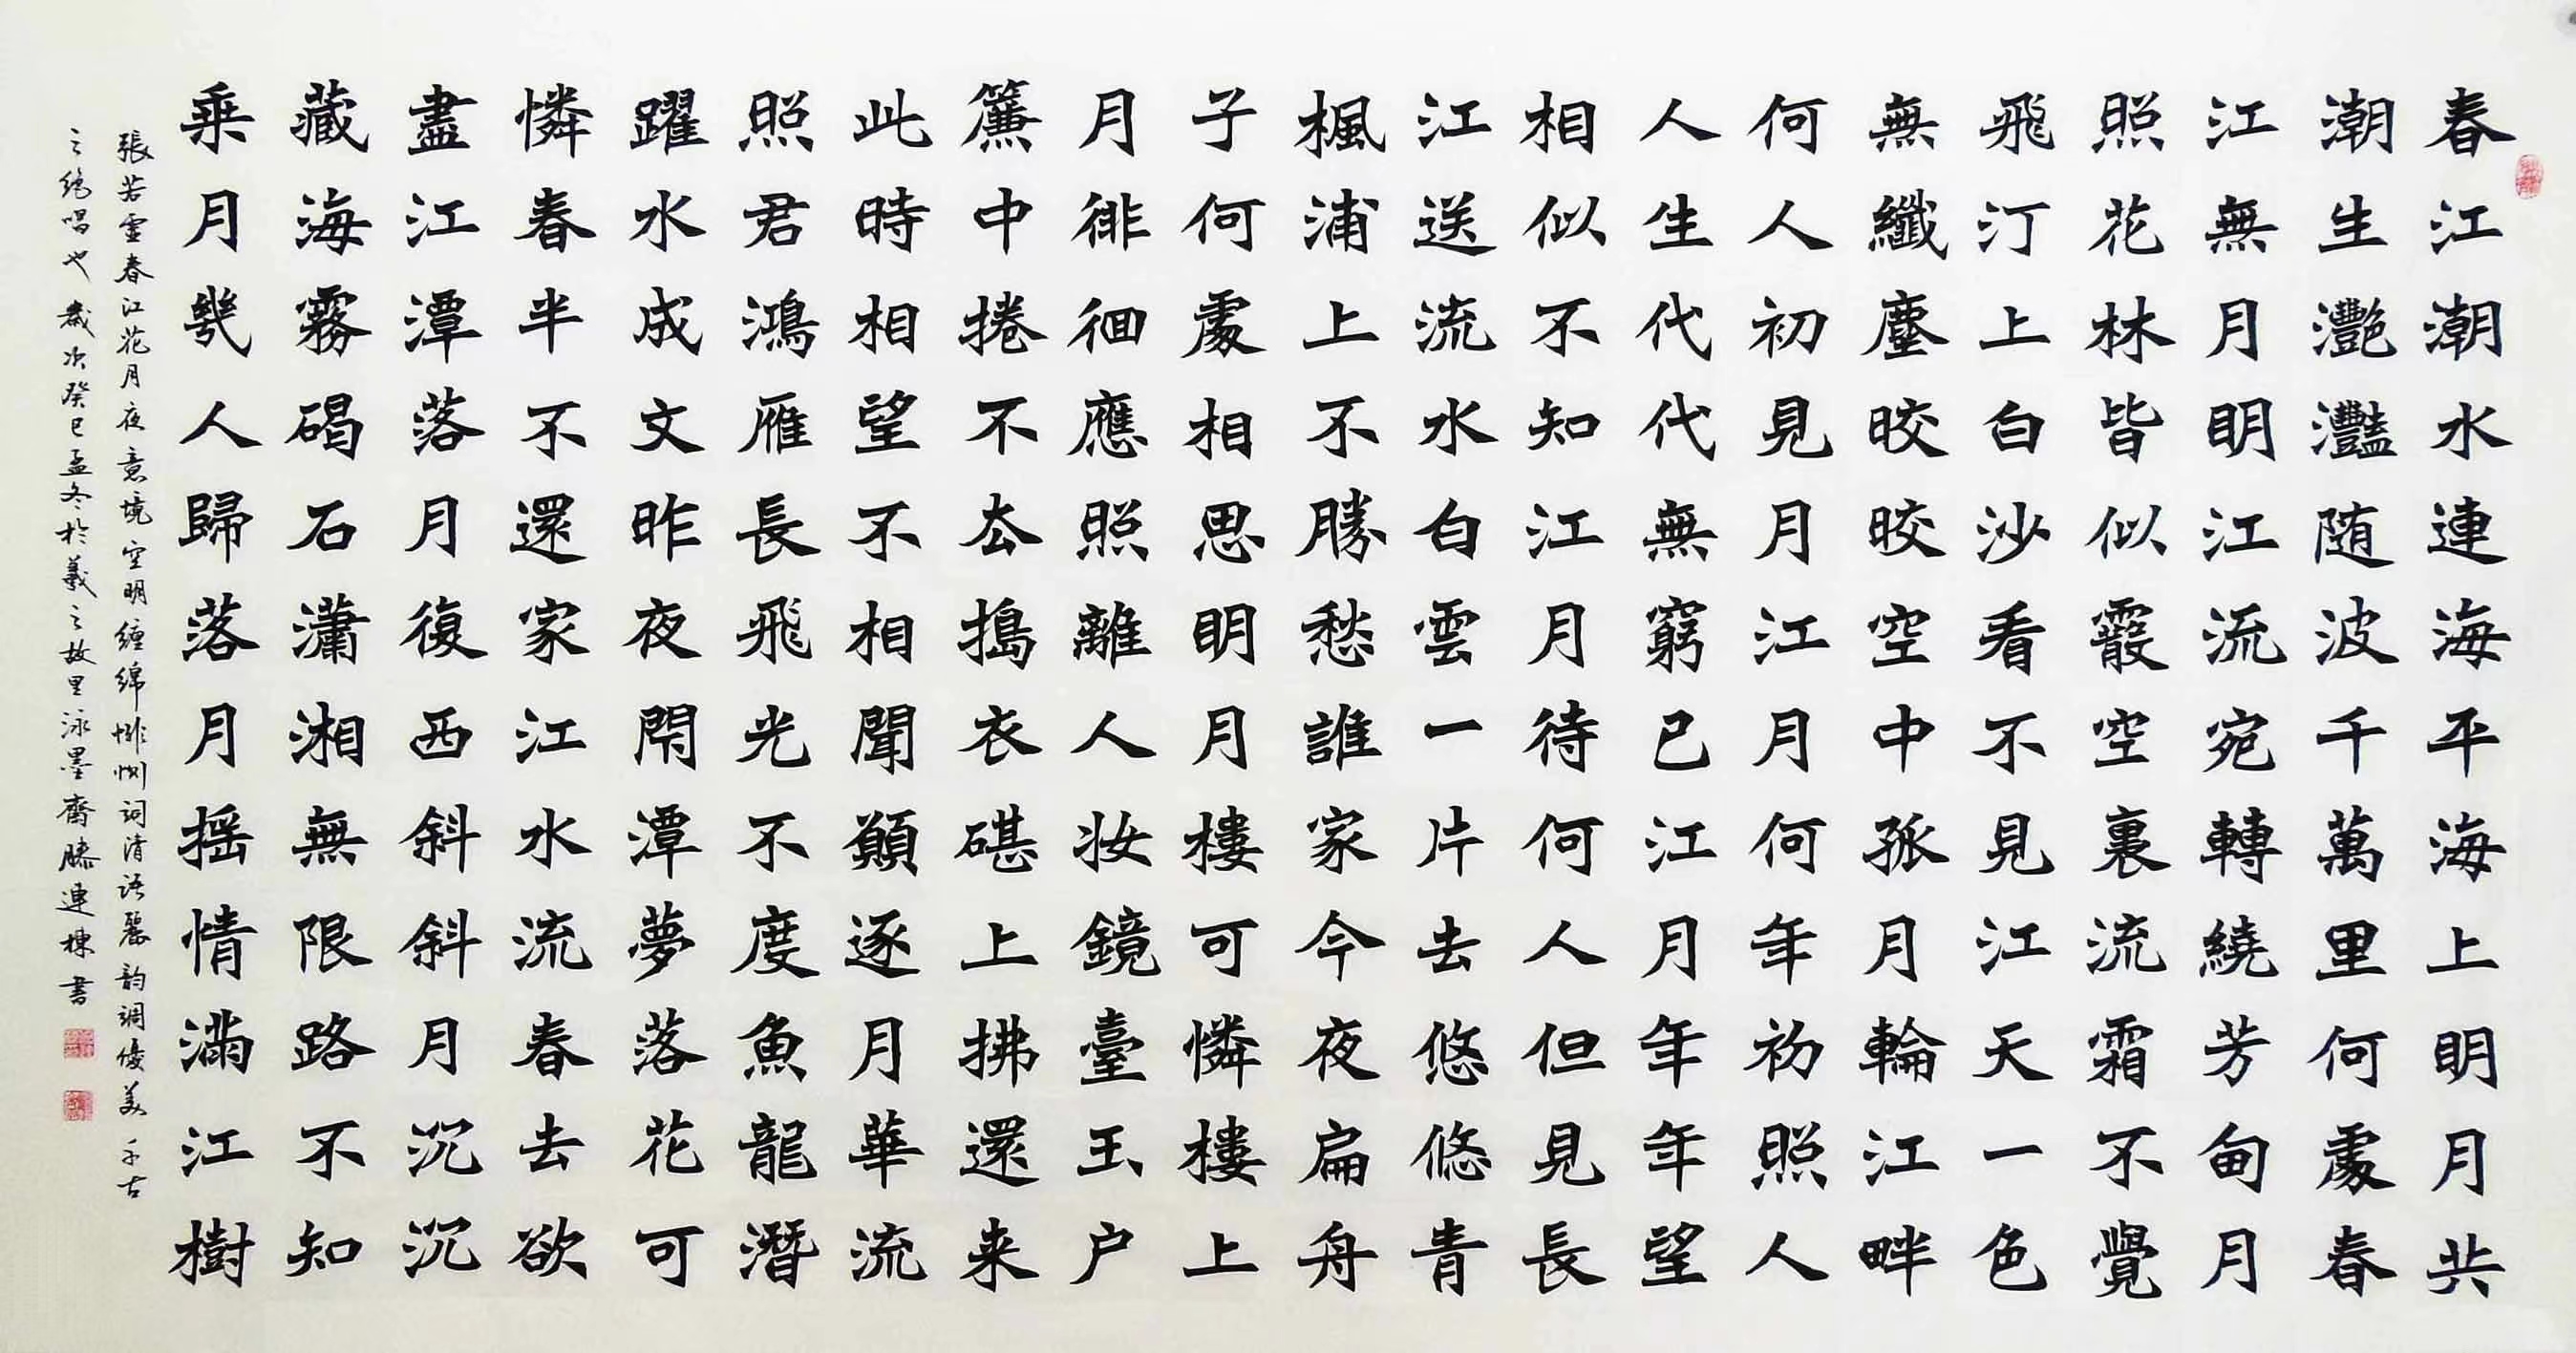 春江潮水連海平海上明月共
潮生灩灩随波千萬里何處春
江無月明江流宛轉繞芳甸月
照花林皆似霰空裏流霜不覺
飛汀上白沙看不見江天一色
無纖塵皎皎空中孤月輪江畔
何人初見月江月何年初照人
人生代代無窮已江月年年望
相似不知江月待何人但見長
江送流水白雲一片去悠悠青
楓浦上不勝愁誰家今夜扁舟
子何處相思明月樓可憐樓上
月徘徊應照離人妝鏡臺玉户
簾中捲不去搗衣碪上拂還来
此時相望不相聞願逐月華流
照君鴻雁長飛光不度魚龍潛
躍水成文昨夜閑潭夢落花可
憐春半不還家江水流春去欲
盡江潭落月復西斜斜月沉沉
藏海霧碣石瀟湘無限路不知
乘月幾人歸落月摇情滿江樹
張若虚春江花月夜意境空明纏綿悱惻词清语麗韵調優美千古
之絶唱也歲次癸巳孟冬於羲之故里泳墨齋滕連棟書